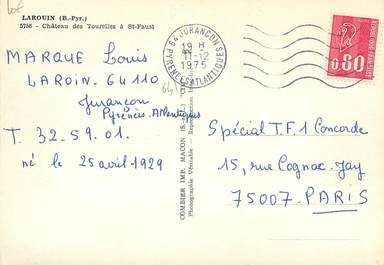 LAROUIN (B.-Pyr.)
5755 - Château des Tourelles à St-Faust
64 JURANÇON
PYRENEES ATLANTIQUES
19 H
11-12
1975
REPUBLIQUE FRANÇAISE
0,80
MARQUE Louis
LAROIN. 64110
Jurançon
Pyrénées. Atlantiques
T. 32-59.01.
né le 25 avril 1929
COMBIER IMP. MACON
Photographie Véritable - Reproduction
Spécial T.F.1 Concorde
15, rue Cognac-Jay
75007 PARIS